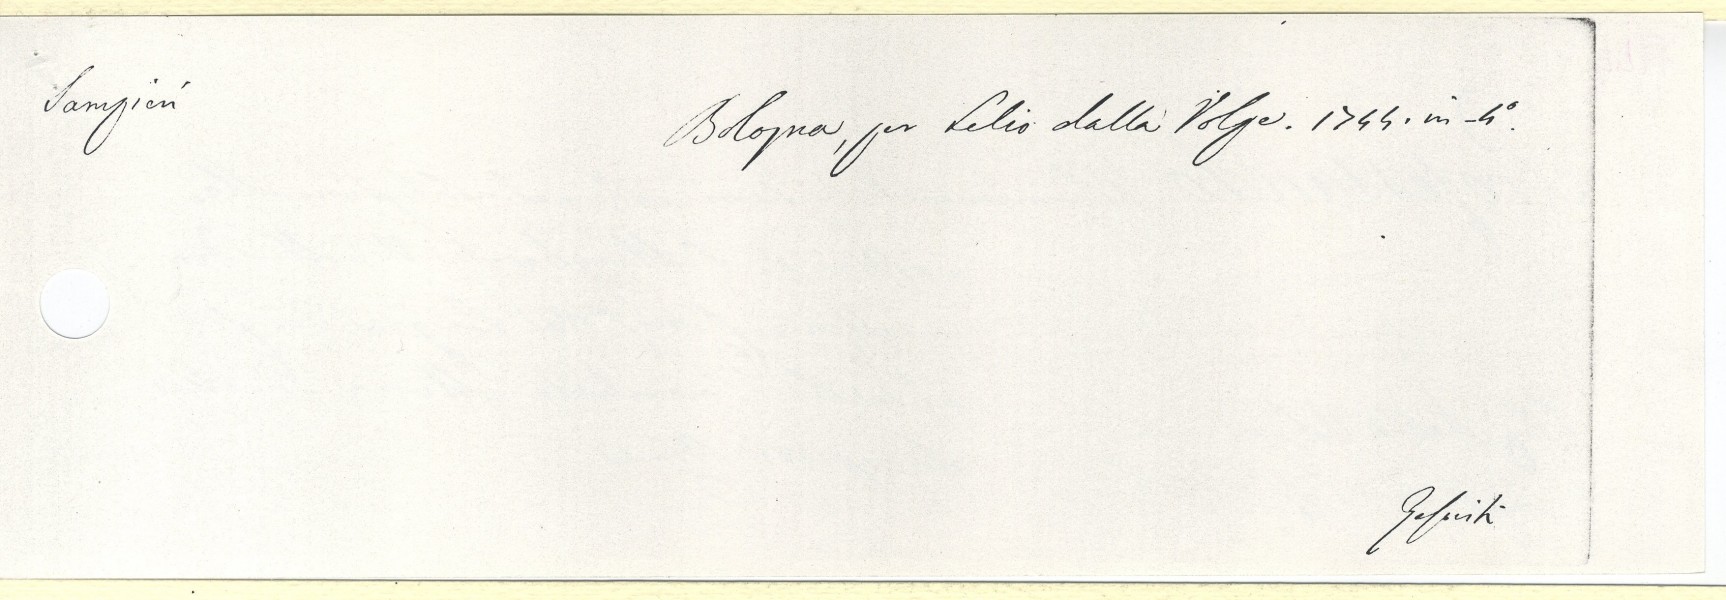 Sampieri
Bologna, per Lelio dalla Volpe. 1744. in-4°.
Gesuiti